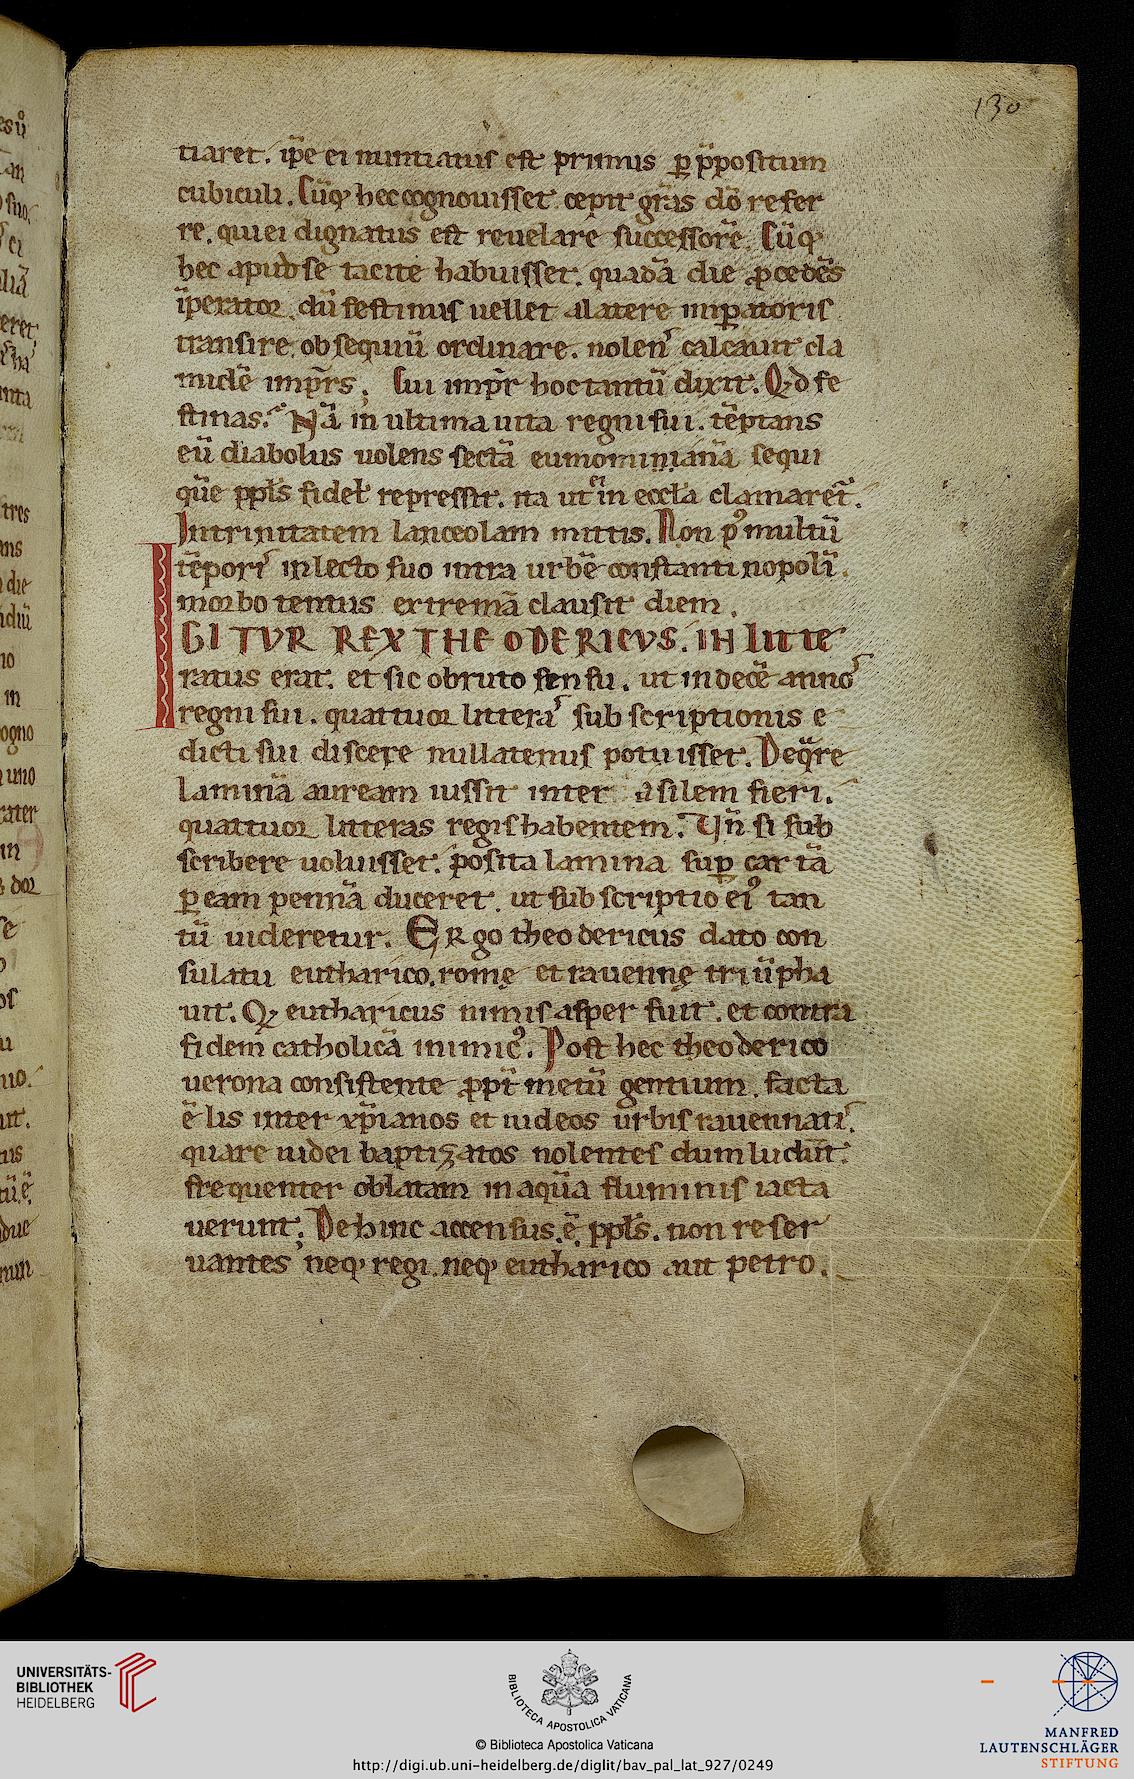 130
tiaret. ip̄e ei nuntiatus est primus ꝑ p̄positum
cubiculi. Cūq; hec cognouisset cepit gr̄as dō refer
re. qui ei dignatus est reuelare successorē. Cūq;
hec apud se tacite habuisset. quadā die ꝓcedēs
īperator. dū festinus uellet a latere imꝑatoris
transire. obsequiū ordinare. nolens calcauit cla
midē imp̄rs; Cui imp̄r hoc tantū dixit. Qd fe
stinas? Nā in ultima uita regni sui. tēptans
eū diabolus uolens sectā eumominianā sequi
quē ppl̄s fidel̄ repressit. ita ut ei in eccl̄a clamarēt.
In trinitatem lanceolam mittis. Non p' multū
tēporis in lecto suo intra urbē constantinopolī.
morbo tentus extremā clausit diem.
IGITVR REX THEODERICVS. INlitte
ratus erat. et sic obruto sensu. ut in decē annos
regni sui. quattuor litteras subscriptionis e
dicti sui discere nullatenus potuisset. De q̄ re
laminā auream iussit inter asilem fieri.
quattuor litteras regis habentem. Vn̄ si sub
scribere uoluisset. posita lamina suꝑ cartā
ꝑ eam pennā duceret. ut subscriptio ei' tan
tū uideretur. ERgo theodericus dato con
sulatu eutharico. romę et rauennę triūpha
uit. Q; eutharicus nimis asper fuit. et contra
fidem catholicā inimic'. Post hec theoderico
uerona consistente ꝓpt̄ metū gentium. facta
ē lis inter xp̄ianos et iudeos urbis rauennatis.
quare iudei baptizatos nolentes dum ludūt.
frequenter oblatam in aquā fluminis iacta
uerunt; Dehinc accensus. ē. ppl̄s. non reser
uantes neq; regi. neq; eutharico aut petro.
UNIVERSITÄTS-
BIBLIOTHEK
HEIDELBERG
BIBLIOTECA APOSTOLICA VATICANA
© Biblioteca Apostolica Vaticana
http://digi.ub.uni-heidelberg.de/diglit/bav_pal_lat_927/0249
MANFRED
LAUTENSCHLÄGER
STIFTUNG